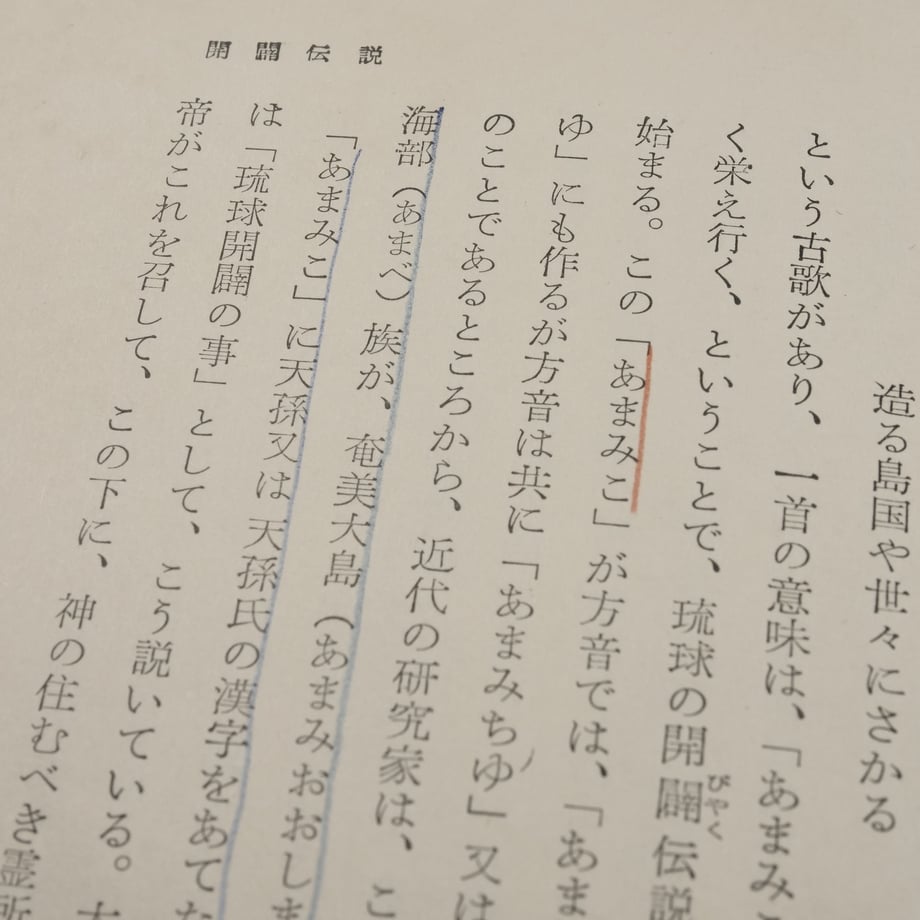 開闢伝説
造る島国や世々にさかる
という古歌があり、一首の意味は、「あまみ
く栄え行く、ということで、琉球の開闢伝説
びやく
始まる。この「あまみこ」が方音では、「あま
ゆ」にも作るが方音は共に「あまみちゆ」又は
のことであるところから、近代の研究家は、こ
海部（あまべ）族が、奄美大島（あまみおおしま
「あまみこ」に天孫又は天孫氏の漢字をあてな
は「琉球開闢の事」として、こう説いている。
帝がこれを召して、この下に、神の住むべき霊所